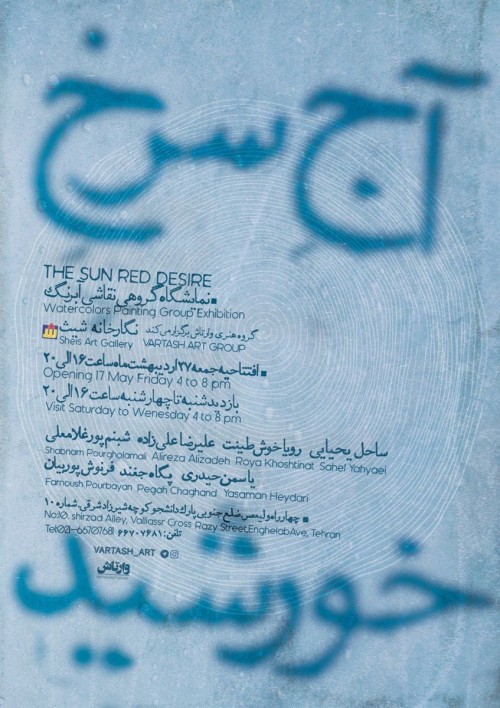 آجِ سرخ
THE SUN RED DESIRE
نمایشگاه گروهی نقاشی آبرنگ
Watercolors Painting Group Exhibition
گروه هنری وارتاش برگزار می کند نگارخانه شیث
Sheis Art Gallery VARTASH ART GROUP
افتتاحیه جمعه ۲۷ اردیبهشت ماه ساعت ۱۶ الی ۲۰
Opening 17 May Friday 4 to 8 pm
بازدید شنبه تا چهارشنبه ساعت ۱۶ الی ۲۰
Visit Saturday to Wenesday 4 to 8 pm
ساحل یحیایی رویا خوش طینت علیرضا علی زاده شبنم پورغلامعلی
Shabnam Pourgholamali Alireza Alizadeh Roya Khoshtinat Sahel Yahyaei
یاسمن حیدری پگاه جغند فرنوش پوربیان
Farnoush Pourbayan Pegah Chaghand Yasaman Heydari
چهارراه ولیعصر، ضلع جنوبی پارک دانشجو کوچه شیرزاد شرقی، شماره ۱۰
No:10. shirzad Alley, Valiassr Cross Razy Street,EnghelabAve, Tehran
تلفن: ۶۶۷۰۷۶۸۱
VARTASH_ART
وارتاش
خورشید